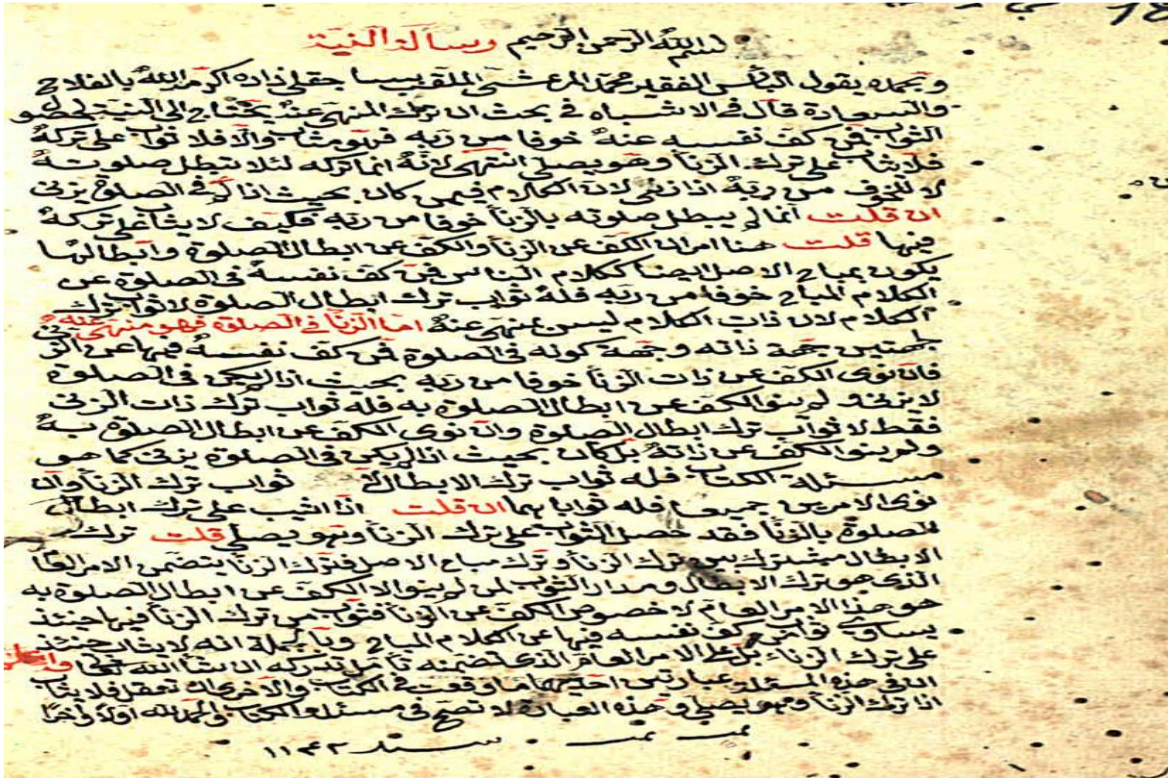 بسم الله الرحمن الرحيم رسالة النية
وبحمده يقول البائس الفقير محمد المرعشى الملقب بساجقلى زاده اكرمه الله بالفلاح
والسعادة قال فى الاشباه فى بحث ان ترك المنهى عنه يحتاج الى النية لحصو
الثواب فمن كف نفسه عنه خوفا من ربه فهو مثاب والا فلا ثواب على تركه
فلا يثاب على ترك الزنا وهو يصلى انتهى لانه انما تركه لئلا تبطل صلوته
لا للخوف من ربه اذا زنى لان الكلام فيمن كان بحيث اذا لم فى الصلوة يزنى
ان قلت انما لم يبطل صلوته بالزنا خوفا من ربه فكيف لا يثاب على تركه
فيها قلت هنا امران الكف عن الزنا والكف عن ابطال الصلوة وابطالها
يكون بمباح الاصل ايضا ككلام الناس فمن كف نفسه فى الصلوة عن
الكلام المباح خوفا من ربه فله ثواب ترك ابطال الصلوة لا ثواب ترك
الكلام لان ذات الكلام ليس عنهى عنه اما الزنا فى الصلوة فهو منهى عنه من
جهتين جهة ذاته وجهة كونه فى الصلوة فمن كف نفسه فيها عن الز
فان نوى الكف عن ذات الزنا خوفا من ربه بحيث اذا لم يكن فى الصلوة
لا يزنى ولم ينو الكف عن ابطال الصلوة به فله ثواب ترك ذات الزنى
فقط لا ثواب ترك ابطال الصلوة وان نوى الكف عن ابطال الصلوة به
ولم ينو الكف عن ذاته بل كان بحيث اذا لم يكن فى الصلوة يزنى كما هو
مسئلة الكتاب فله ثواب ترك الابطال لا ثواب ترك الزنا وان
نوى الامرين جميعا فله ثوابا بهما ان قلت اذا اثيب على ترك ابطال
الصلوة بالزنا فقد حصل الثواب على ترك الزنا وهو يصلى قلت ترك
الابطال مشترك بين ترك الزنا وترك مباح الاصل فترك الزنا يتضمن الامر العا
الذى هو ترك الابطال ومدار الثواب لمن لم ينو الا الكف عن ابطال الصلوة به
هو هذا الامر العام لا خصوص الكف عن الزنا فثواب من ترك الزنا فيها حينئذ
يساوى ثواب من كف نفسه فيها عن الكلام المباح وبالجملة انه لا يثاب حينئذ
على ترك الزنا بل على الامر العام الذى تضمنه تأمل تدركه ان شا الله تعالى واعلم
ان فى هذه المسئلة عبارتين احديهما ما وقعت فى الكتاب والاخرى فلا يثاب
اذا ترك الزنا وهو يصلى وهذه العبارة لا تصح فى مسئلة الكتاب والحمد لله اولا واخرا
تمت تمت سنة ١١٤٢